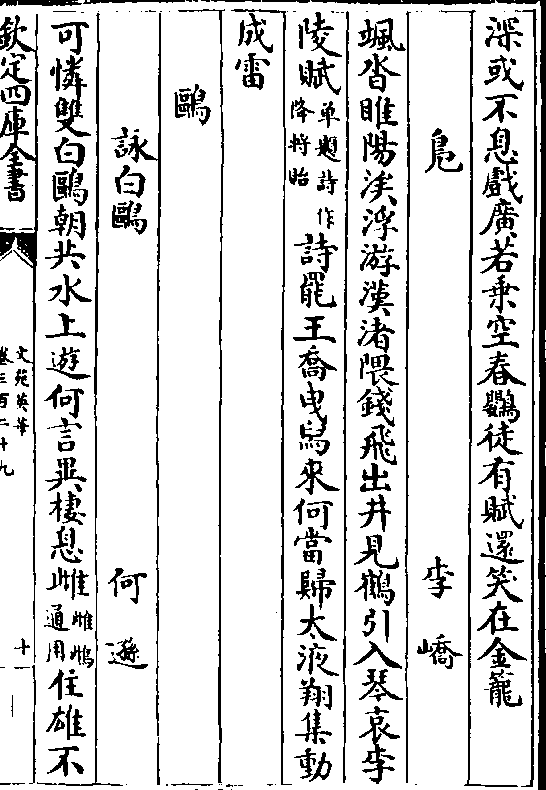 深或不息戲廣若乗空春鸚徒有賦還笑在金籠
鳬 李嶠
颯沓睢陽涘浮游漢渚隈錢飛出井見鶴引入琴哀李
陵賦單題詩作降將貽詩罷王喬曳舄來何當歸太液翔集動
成雷
鷗
詠白鷗 何遜
可憐雙白鷗朝共水上遊何言異棲息雌雌鴡通用住雄不
欽定四庫全書
文苑英華
卷三百二十九
十